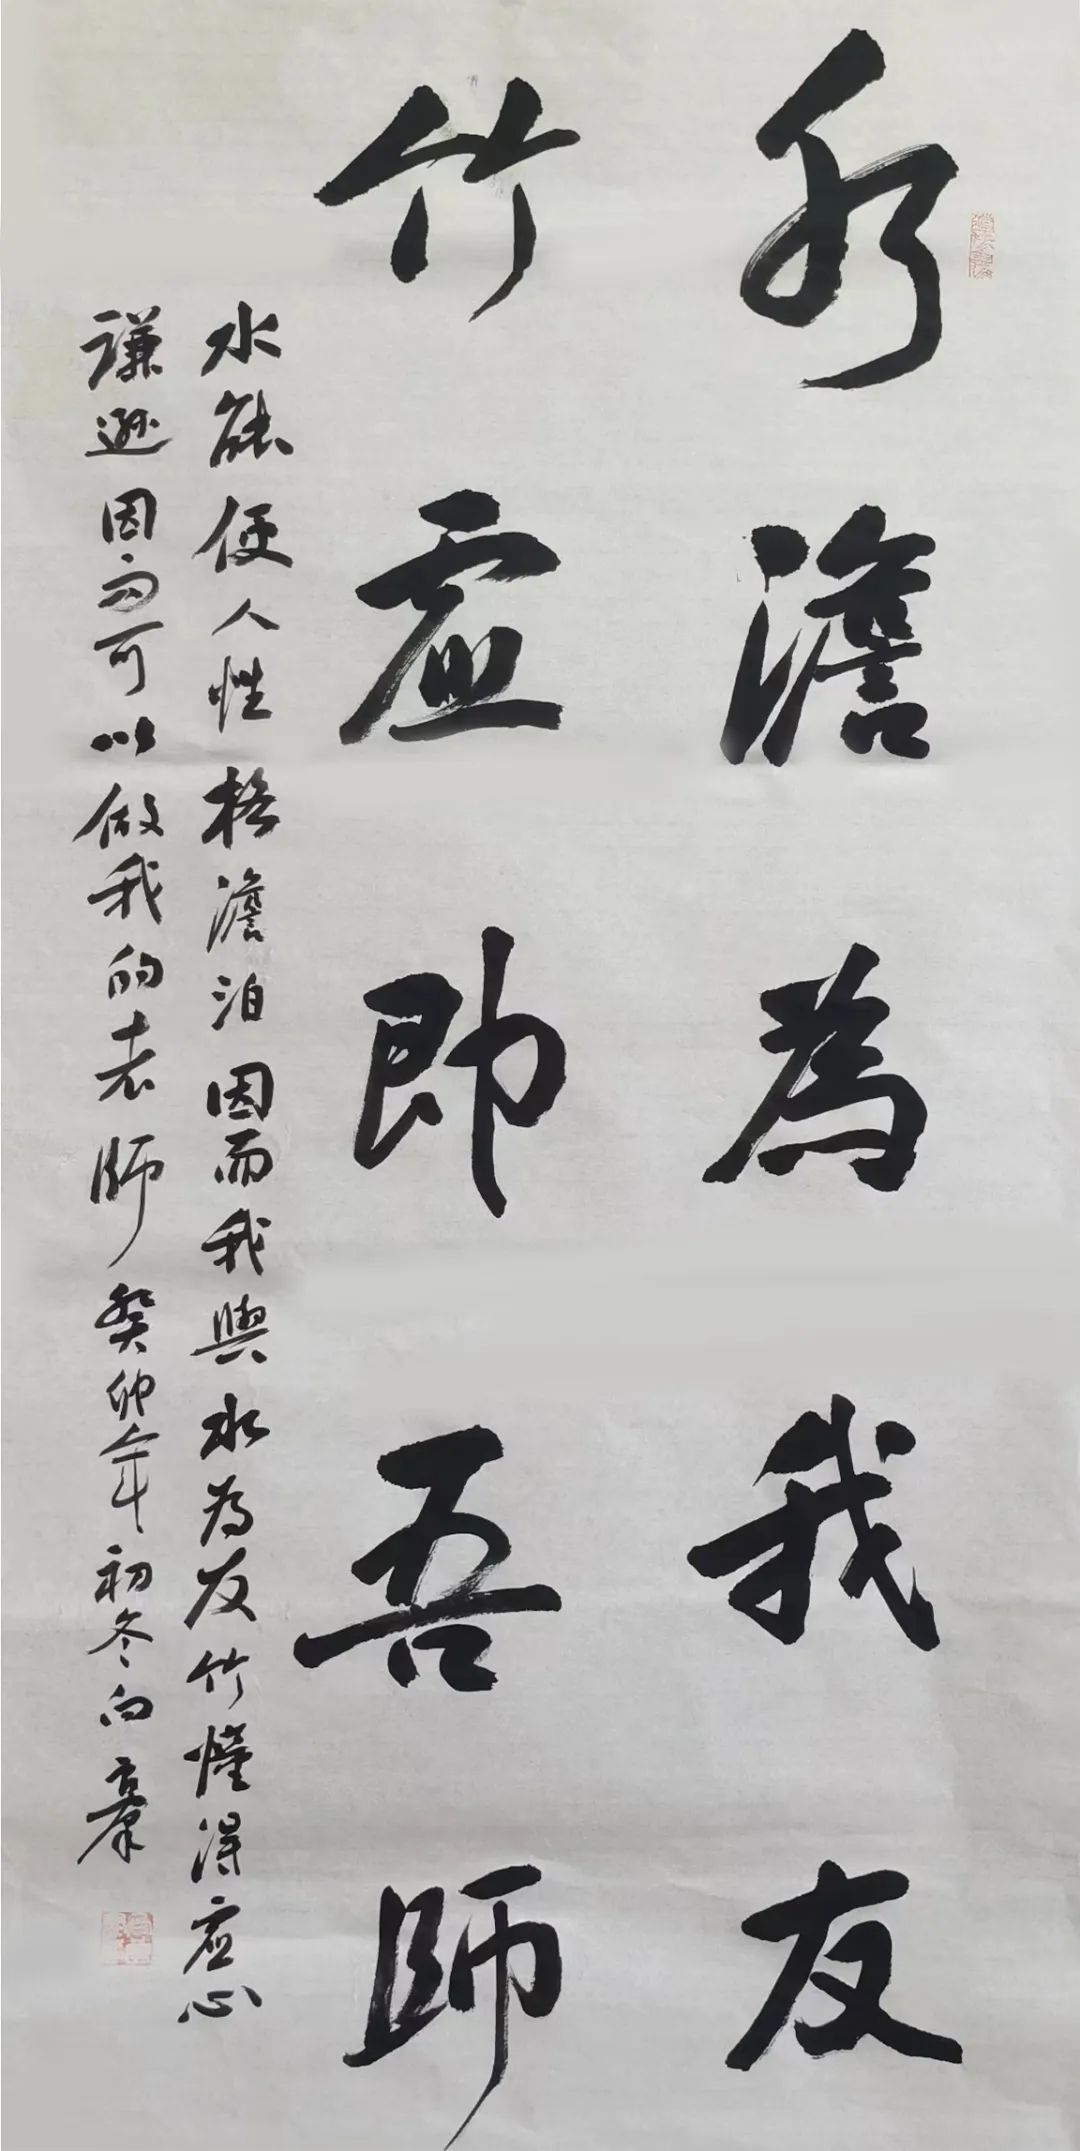 水澹為我友
竹虛即吾師
水能使人性格澹泊因而我與水為友竹懂得虛心
謙遜因而可以做我的老師癸卯年初冬向